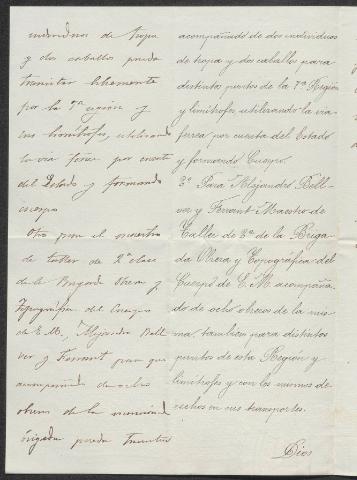 individuos de tropa
y dos caballos pueda
transitar libremente
por la 7ª región y
sus limítrofes, utilizando
la vía férrea por cuenta
del Estado y formando
cuerpo
Otro para el maestro
de taller de 2ª clase
de la Brigada Obrera y
Topográfica del Cuerpo
de E.M., Alejandro Bell-
ver y Ferrant para que
acompañado de ocho
obreros de la mencionada
Brigada pueda transitar
acompañado de dos individuos
de tropa y dos caballos para
distintos puntos de la 7ª Región
y limítrofes utilizando la vía-
ferrea por cuenta del Estado
y formando Cuerpo.
3º Para Alejandro Bell-
ver y Ferrant Maestro de
Taller de 2ª de la Briga-
da Obrera y Topografica del
Cuerpo de E.M. acompaña-
do de ocho obreros de la mis-
ma, tambien para distintos
puntos de esta Región y
limitrofes y con los mismos de-
rechos en sus transportes.
Dios